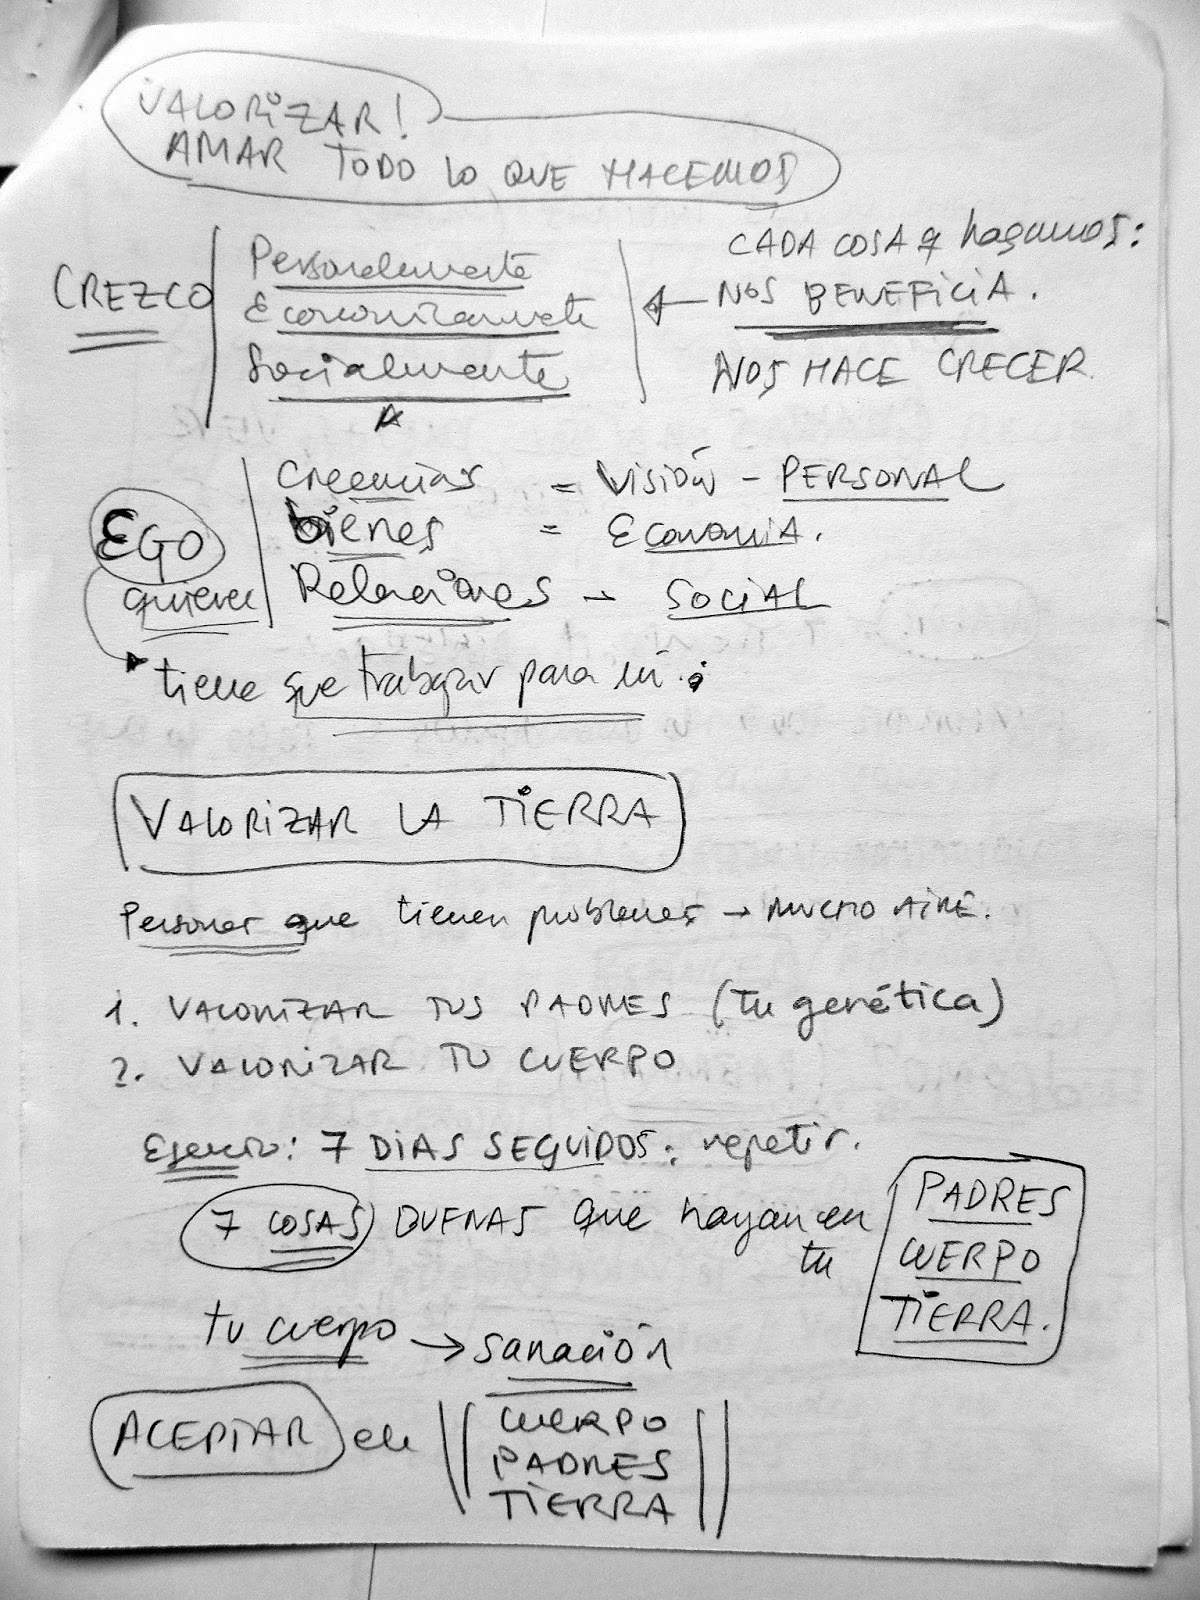 VALORIZAR!
AMAR TODO LO QUE HACEMOS
CREZCO
Personalmente
Económicamente
Socialmente
CADA COSA q hagamos:
NOS BENEFICIA.
NOS HACE CRECER
EGO
quiere
Creencias = VISIÓN - PERSONAL
bienes = ECONOMIA.
Relaciones - SOCIAL
tiene que trabajar para mí.
VALORIZAR LA TIERRA
Personas que tienen problemas → MUCHO AIRE.
1. VALORIZAR TUS PADRES (tu genética)
2. VALORIZAR TU CUERPO
Ejercicio: 7 DIAS SEGUIDOS: repetir.
7 COSAS BUENAS que hayan en
tu
PADRES
CUERPO
TIERRA.
tu cuerpo → sanación
ACEPTAR
CUERPO
PADRES
TIERRA